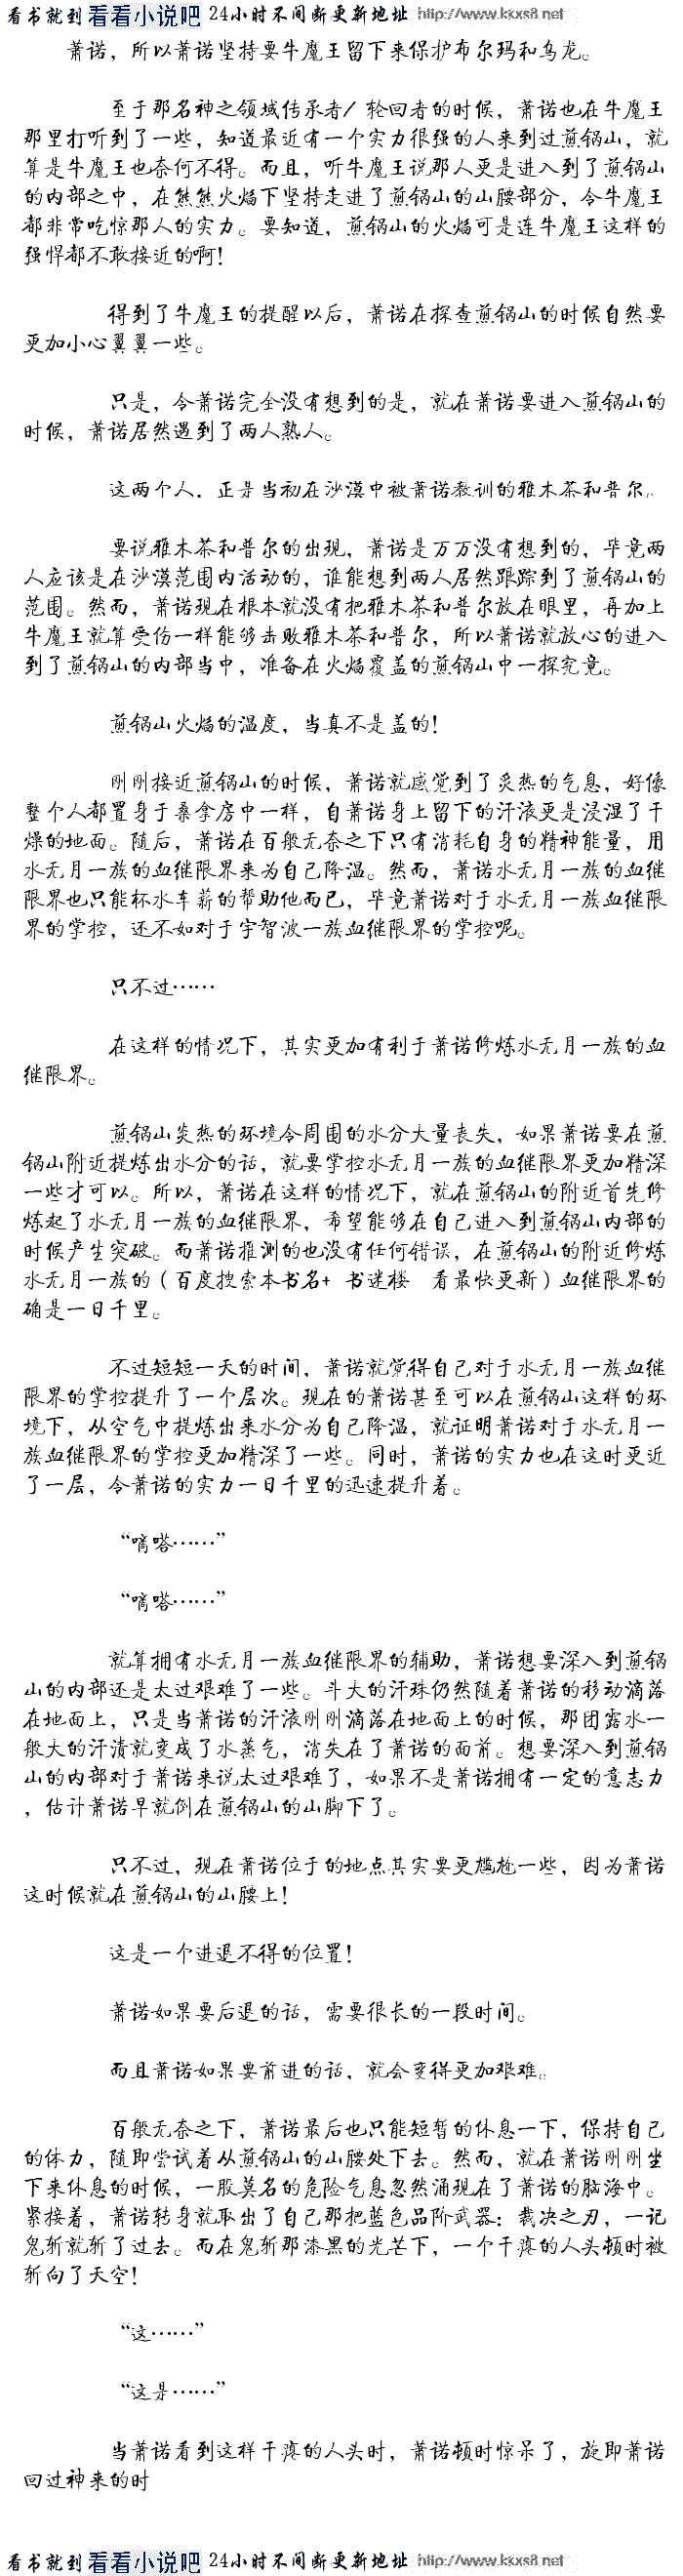 看书就到 看看小说吧 24小时不间断更新地址 http://www.kxxs8.net
萧诺，所以萧诺坚持要牛魔王留下来保护布尔玛和乌龙。
至于那名神之领域传承者/轮回者的时候，萧诺也在牛魔王
那里打听到了一些，知道最近有一个实力很强的人来到过煎锅山，就
算是牛魔王也奈何不得。而且，听牛魔王说那人更是进入到了煎锅山
的内部之中，在熊熊火焰下坚持走进了煎锅山的山腰部分，令牛魔王
都非常吃惊那人的实力。要知道，煎锅山的火焰可是连牛魔王这样的
强悍都不敢接近的啊！
得到了牛魔王的提醒以后，萧诺在探查煎锅山的时候自然要
更加小心翼翼一些。
只是，令萧诺完全没有想到的是，就在萧诺要进入煎锅山的
时候，萧诺居然遇到了两人熟人。
这两个人，正是当初在沙漠中被萧诺教训的雅木茶和普尔。
要说雅木茶和普尔的出现，萧诺是万万没有想到的，毕竟两
人应该是在沙漠范围内活动的，谁能想到两人居然跟踪到了煎锅山的
范围。然而，萧诺现在根本就没有把雅木茶和普尔放在眼里，再加上
牛魔王就算受伤一样能够击败雅木茶和普尔，所以萧诺就放心的进入
到了煎锅山的内部当中，准备在火焰覆盖的煎锅山中一探究竟。
煎锅山火焰的温度，当真不是盖的！
刚刚接近煎锅山的时候，萧诺就感觉到了炙热的气息，好像
整个人都置身于桑拿房中一样，自萧诺身上留下的汗液更是浸湿了干
燥的地面。随后，萧诺在百般无奈之下只有消耗自身的精神能量，用
水无月一族的血继限界来为自己降温。然而，萧诺水无月一族的血继
限界也只能杯水车薪的帮助他而已，毕竟萧诺对于水无月一族血继限
界的掌控，还不如对于宇智波一族血继限界的掌控呢。
只不过……
在这样的情况下，其实更加有利于萧诺修炼水无月一族的血
继限界。
煎锅山炎热的环境令周围的水分大量丧失，如果萧诺要在煎
锅山附近提炼出水分的话，就要掌控水无月一族的血继限界更加精深
一些才可以。所以，萧诺在这样的情况下，就在煎锅山的附近首先修
炼起了水无月一族的血继限界，希望能够在自己进入到煎锅山内部的
时候产生突破。而萧诺推测的也没有任何错误，在煎锅山的附近修炼
水无月一族的（百度搜索本书名+ 书迷楼 看最快更新）血继限界的
确是一日千里。
不过短短一天的时间，萧诺就觉得自己对于水无月一族血继
限界的掌控提升了一个层次。现在的萧诺甚至可以在煎锅山这样的环
境下，从空气中提炼出来水分为自己降温，就证明萧诺对于水无月一
族血继限界的掌控更加精深了一些。同时，萧诺的实力也在这时更近
了一层，令萧诺的实力一日千里的迅速提升着。
“嘀嗒……”
“嘀嗒……”
就算拥有水无月一族血继限界的辅助，萧诺想要深入到煎锅
山的内部还是太过艰难了一些。斗大的汗珠仍然随着萧诺的移动滴落
在地面上，只是当萧诺的汗液刚刚滴落在地面上的时候，那团露水一
般大的汗渍就变成了水蒸气，消失在了萧诺的面前。想要深入到煎锅
山的内部对于萧诺来说太过艰难了，如果不是萧诺拥有一定的意志力
，估计萧诺早就倒在煎锅山的山脚下了。
只不过，现在萧诺位于的地点其实要更尴尬一些，因为萧诺
这时候就在煎锅山的山腰上！
这是一个进退不得的位置！
萧诺如果要后退的话，需要很长的一段时间。
而且萧诺如果要前进的话，就会变得更加艰难。
百般无奈之下，萧诺最后也只能短暂的休息一下，保持自己
的体力，随即尝试着从煎锅山的山腰处下去。然而，就在萧诺刚刚坐
下来休息的时候，一股莫名的危险气息忽然涌现在了萧诺的脑海中。
紧接着，萧诺转身就取出了自己那把蓝色品阶武器：裁决之刃，一记
鬼斩就斩了过去。而在鬼斩那漆黑的光芒下，一个干瘪的人头顿时被
斩向了天空！
“这……”
“这是……”
当萧诺看到这样干瘪的人头时，萧诺顿时惊呆了，旋即萧诺
回过神来的时
看书就到 看看小说吧 24小时不间断更新地址 http://www.kxxs8.net